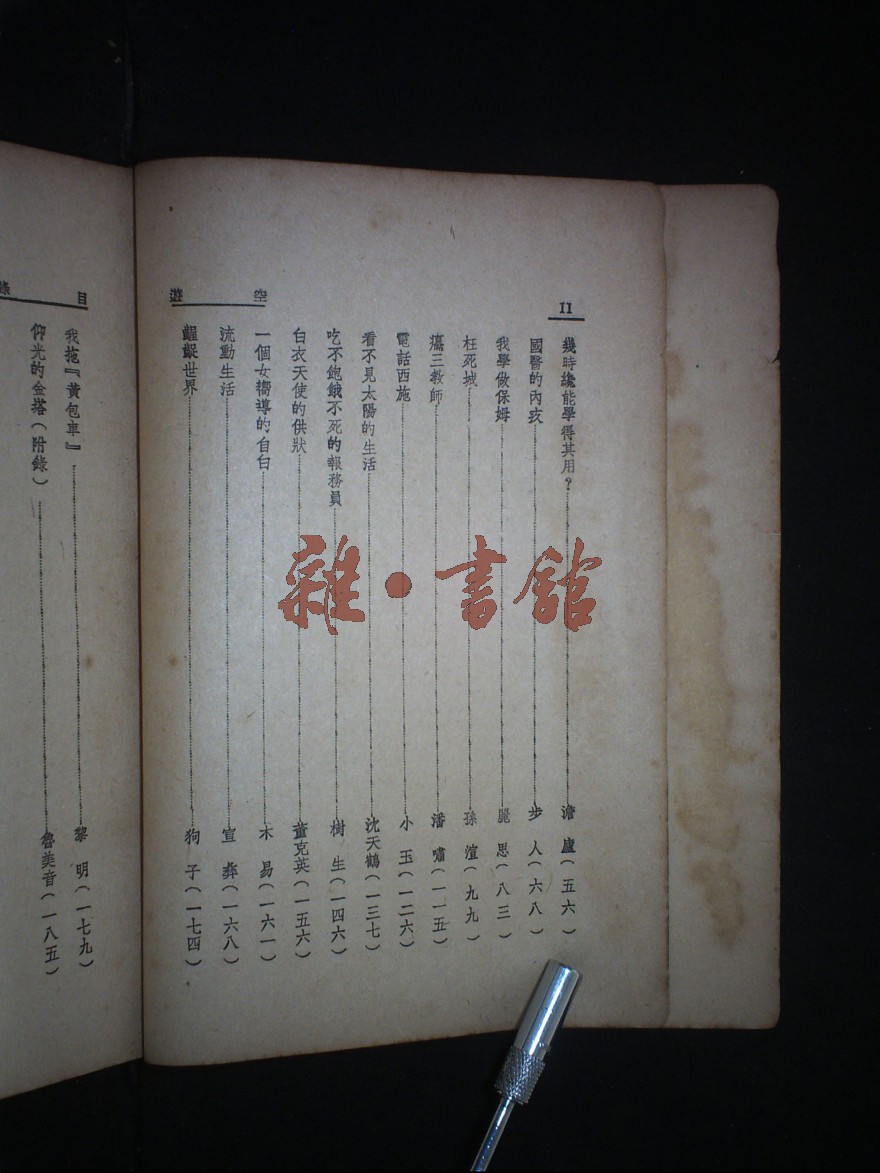 II
空遊
幾時纔能學得其用？ 澹廬(五六)
國醫的內疚 步人(六八)
我學做保姆 思(八三)
枉死城 孫渲(九九)
癟三教師 潘嘯(一一五)
電話西施 小玉(一二六)
看不見太陽的生活 沈天鶴(一三七)
吃不飽餓不死的報務員 樹生(一四六)
白衣天使的供狀 董克英(一五六)
一個女嚮導的自白 木易(一六一)
流動生活 宣彝(一六八)
齷齪世界 狗子(一七四)
目錄
我拖『黃包車』 黎明(一七九)
仰光的金塔(附錄) 魯美音(一八五)
雜·書館